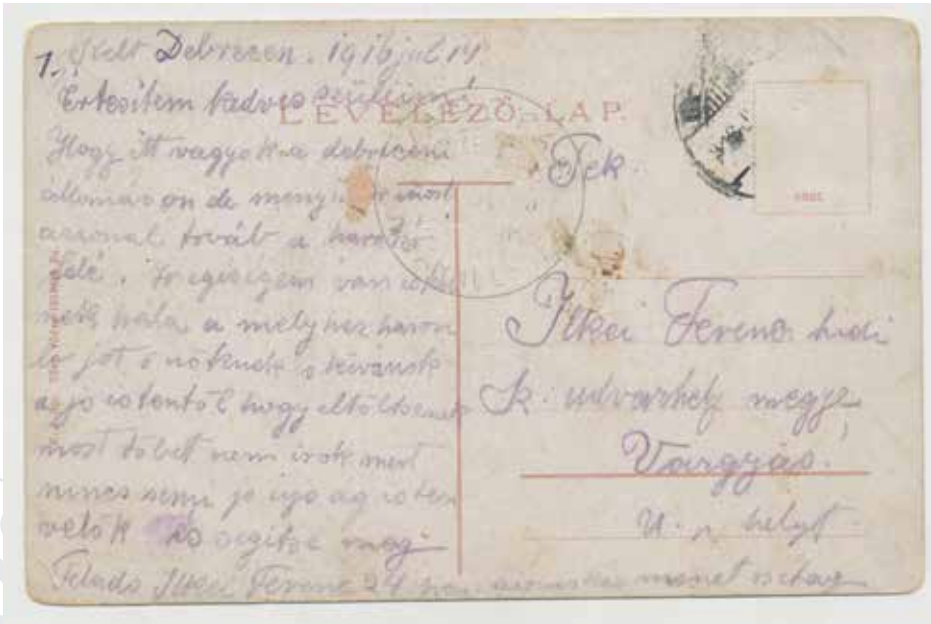 1. Kelt Debrecen. 1916 jul 14
Értesitem kedves szüleim!
LEVELEZŐ-LAP.
Hogy itt vagyok a debreceni
állomás on de menyünk most
azonal továb a harctér
felé. Egéségem van
nek hála a melyhez hason
jot önöknek is kivánok
a jo istentöl hogy eltöltsenek
most többet nem irok mert
nincs semi jo ujság isten
velök és segitse meg
Felado Ilkei Ferenc 24 menet
Tek.
Ilkei Ferenc hidi
k. udvarhely megye
Vargyás.
u. p. helyt